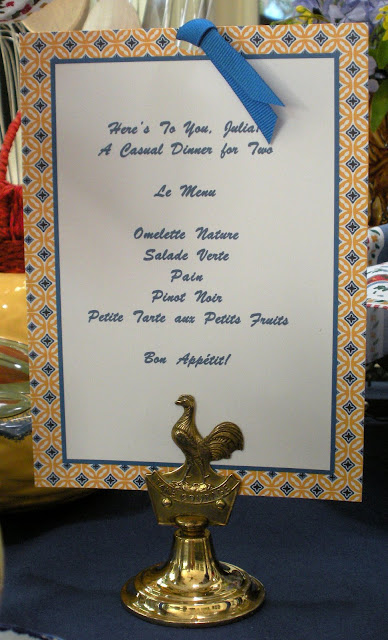 Here's To You, Julia!
A Casual Dinner for Two
Le Menu
Omelette Nature
Salade Verte
Pain
Pinot Noir
Petite Tarte aux Petits Fruits
Bon Appétit!